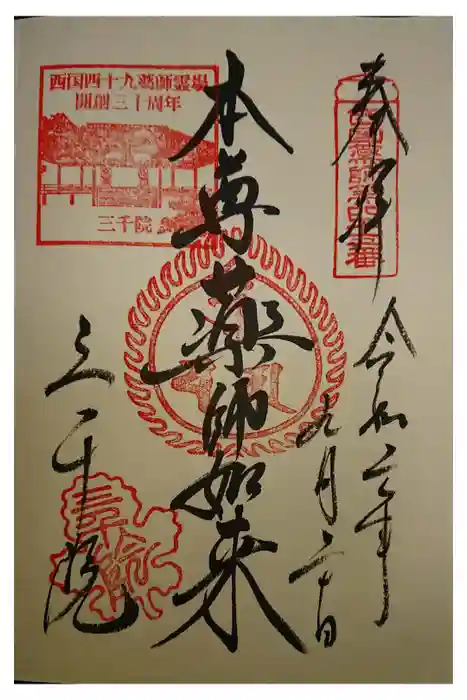 奉拝
西国薬師第四十五番
令和二年
九月二十日
本尊薬師如来
西国四十九薬師霊場
開創三十周年
三千院
三千院